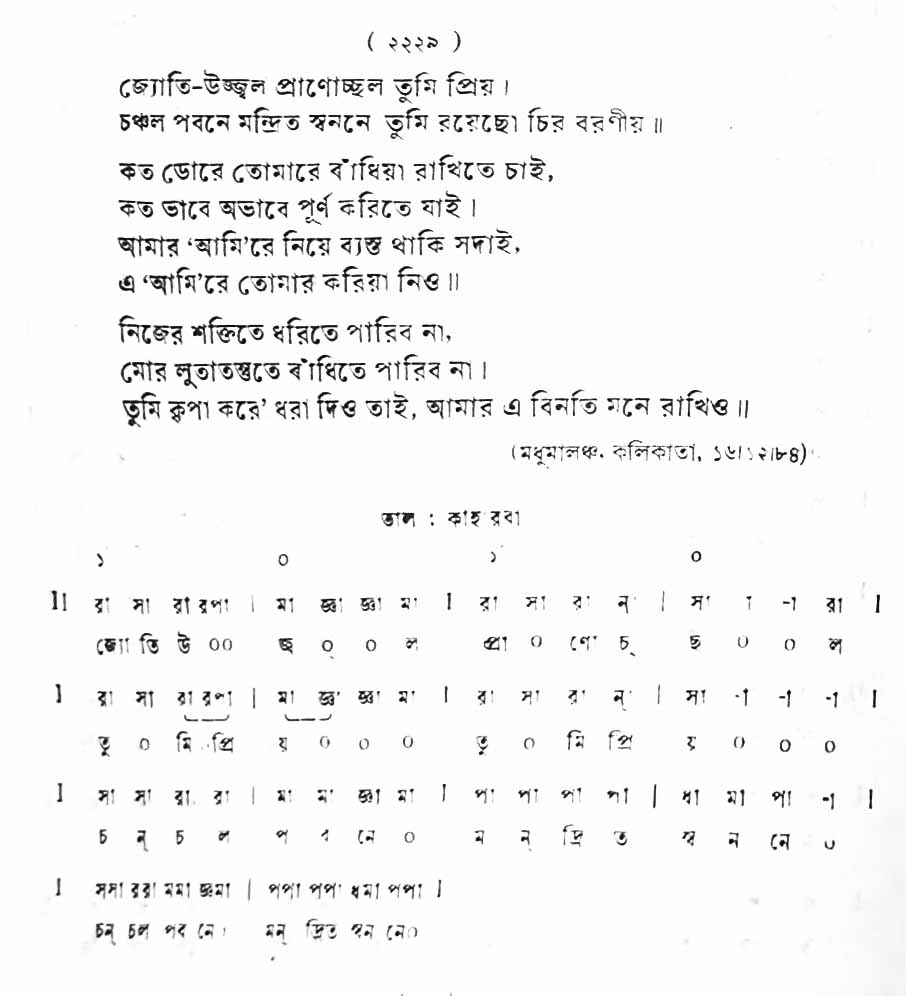 ( ২২২৯ )
জ্যোতি-উজ্জ্বল প্রাণোচ্ছল তুমি প্রিয় ।
চঞ্চল পবনে মন্দ্রিত স্বননে তুমি রয়েছো চির বরণীয় ॥
কত ডোরে তোমারে বাঁধিয়া রাখিতে চাই,
কত ভাবে অভাবে পূর্ণ করিতে যাই ।
আমার ‘আমি’রে নিয়ে ব্যস্ত থাকি সদাই,
এ ‘আমি’রে তোমার করিয়া নিও ॥
নিজের শক্তিতে ধরিতে পারিব না,
মোর লূতাতন্তুতে বাঁধিতে পারিব না ।
তুমি কৃপা করে’ ধরা দিও তাই, আমার এ বিনতি মনে রাখিও ॥
(মধুমালঞ্চ, কলিকাতা, ১৬।১২।৮৪)
তাল : কাহারবা
১ ০ ১ ০
II রা সা রা রপা । মা জ্ঞা জ্ঞা মা I রা সা রা ন্ । সা া -া রা I
জ্যো তি উ ০০ জ্জ্ব ০ ০ ল প্রা ০ ণো চ্ ছ ০ ০ ল
I রা সা রা রপা । মা জ্ঞা জ্ঞা মা I রা সা রা ন্ । সা -া -া -া I
তু ০ মি প্রি য় ০ ০ ০ তু ০ মি প্রি য় ০ ০ ০
I সা সা রা রা । মা মা জ্ঞা মা I পা পা পা পা । ধা মা পা -া I
চ ন্ চ ল প ব নে ০ ম ন্ দ্রি ত স্ব ন নে ০
I সসা ররা মমা জ্ঞমা । পপা পপা ধমা পপা I
চন্ চল পব নে০ মন্ দ্রিত স্বন নে০